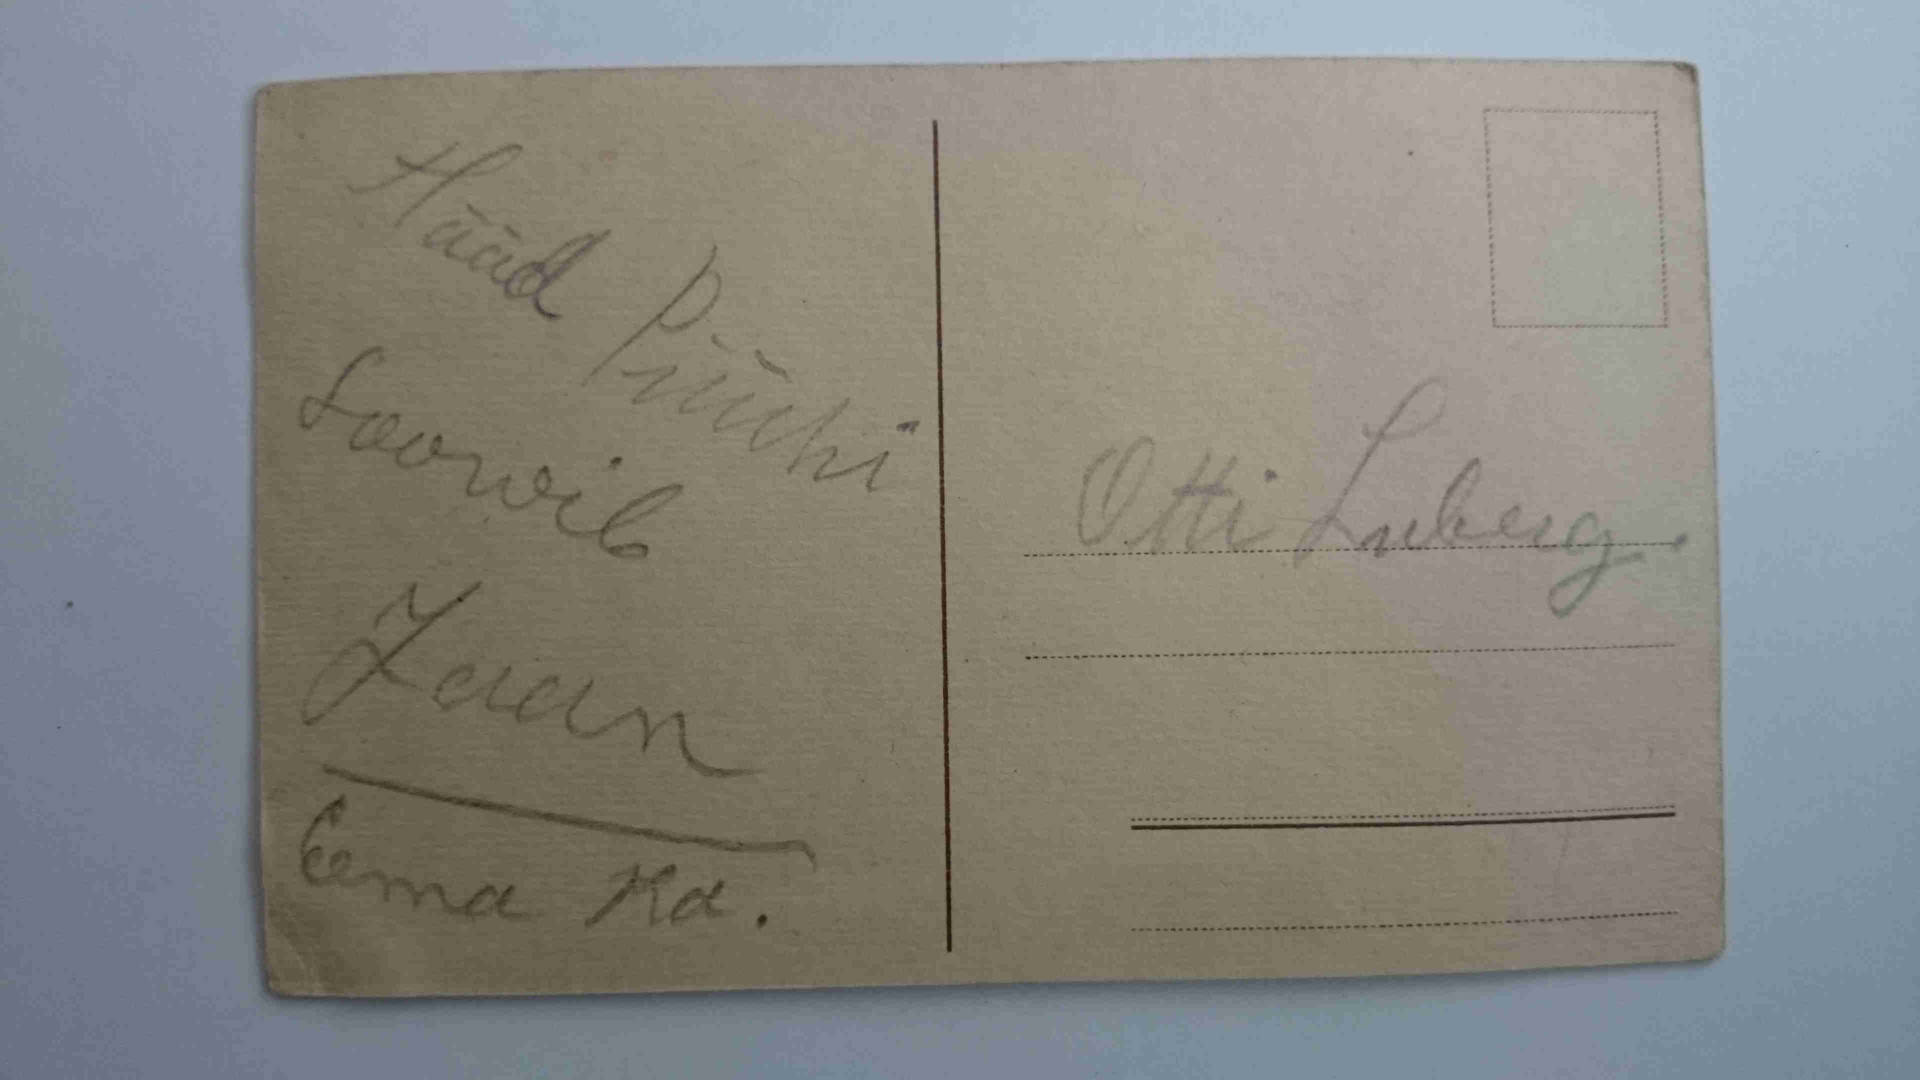 Hääd Pühi
Soowib
Jaan
Eema Ka.
Otti Luberg.